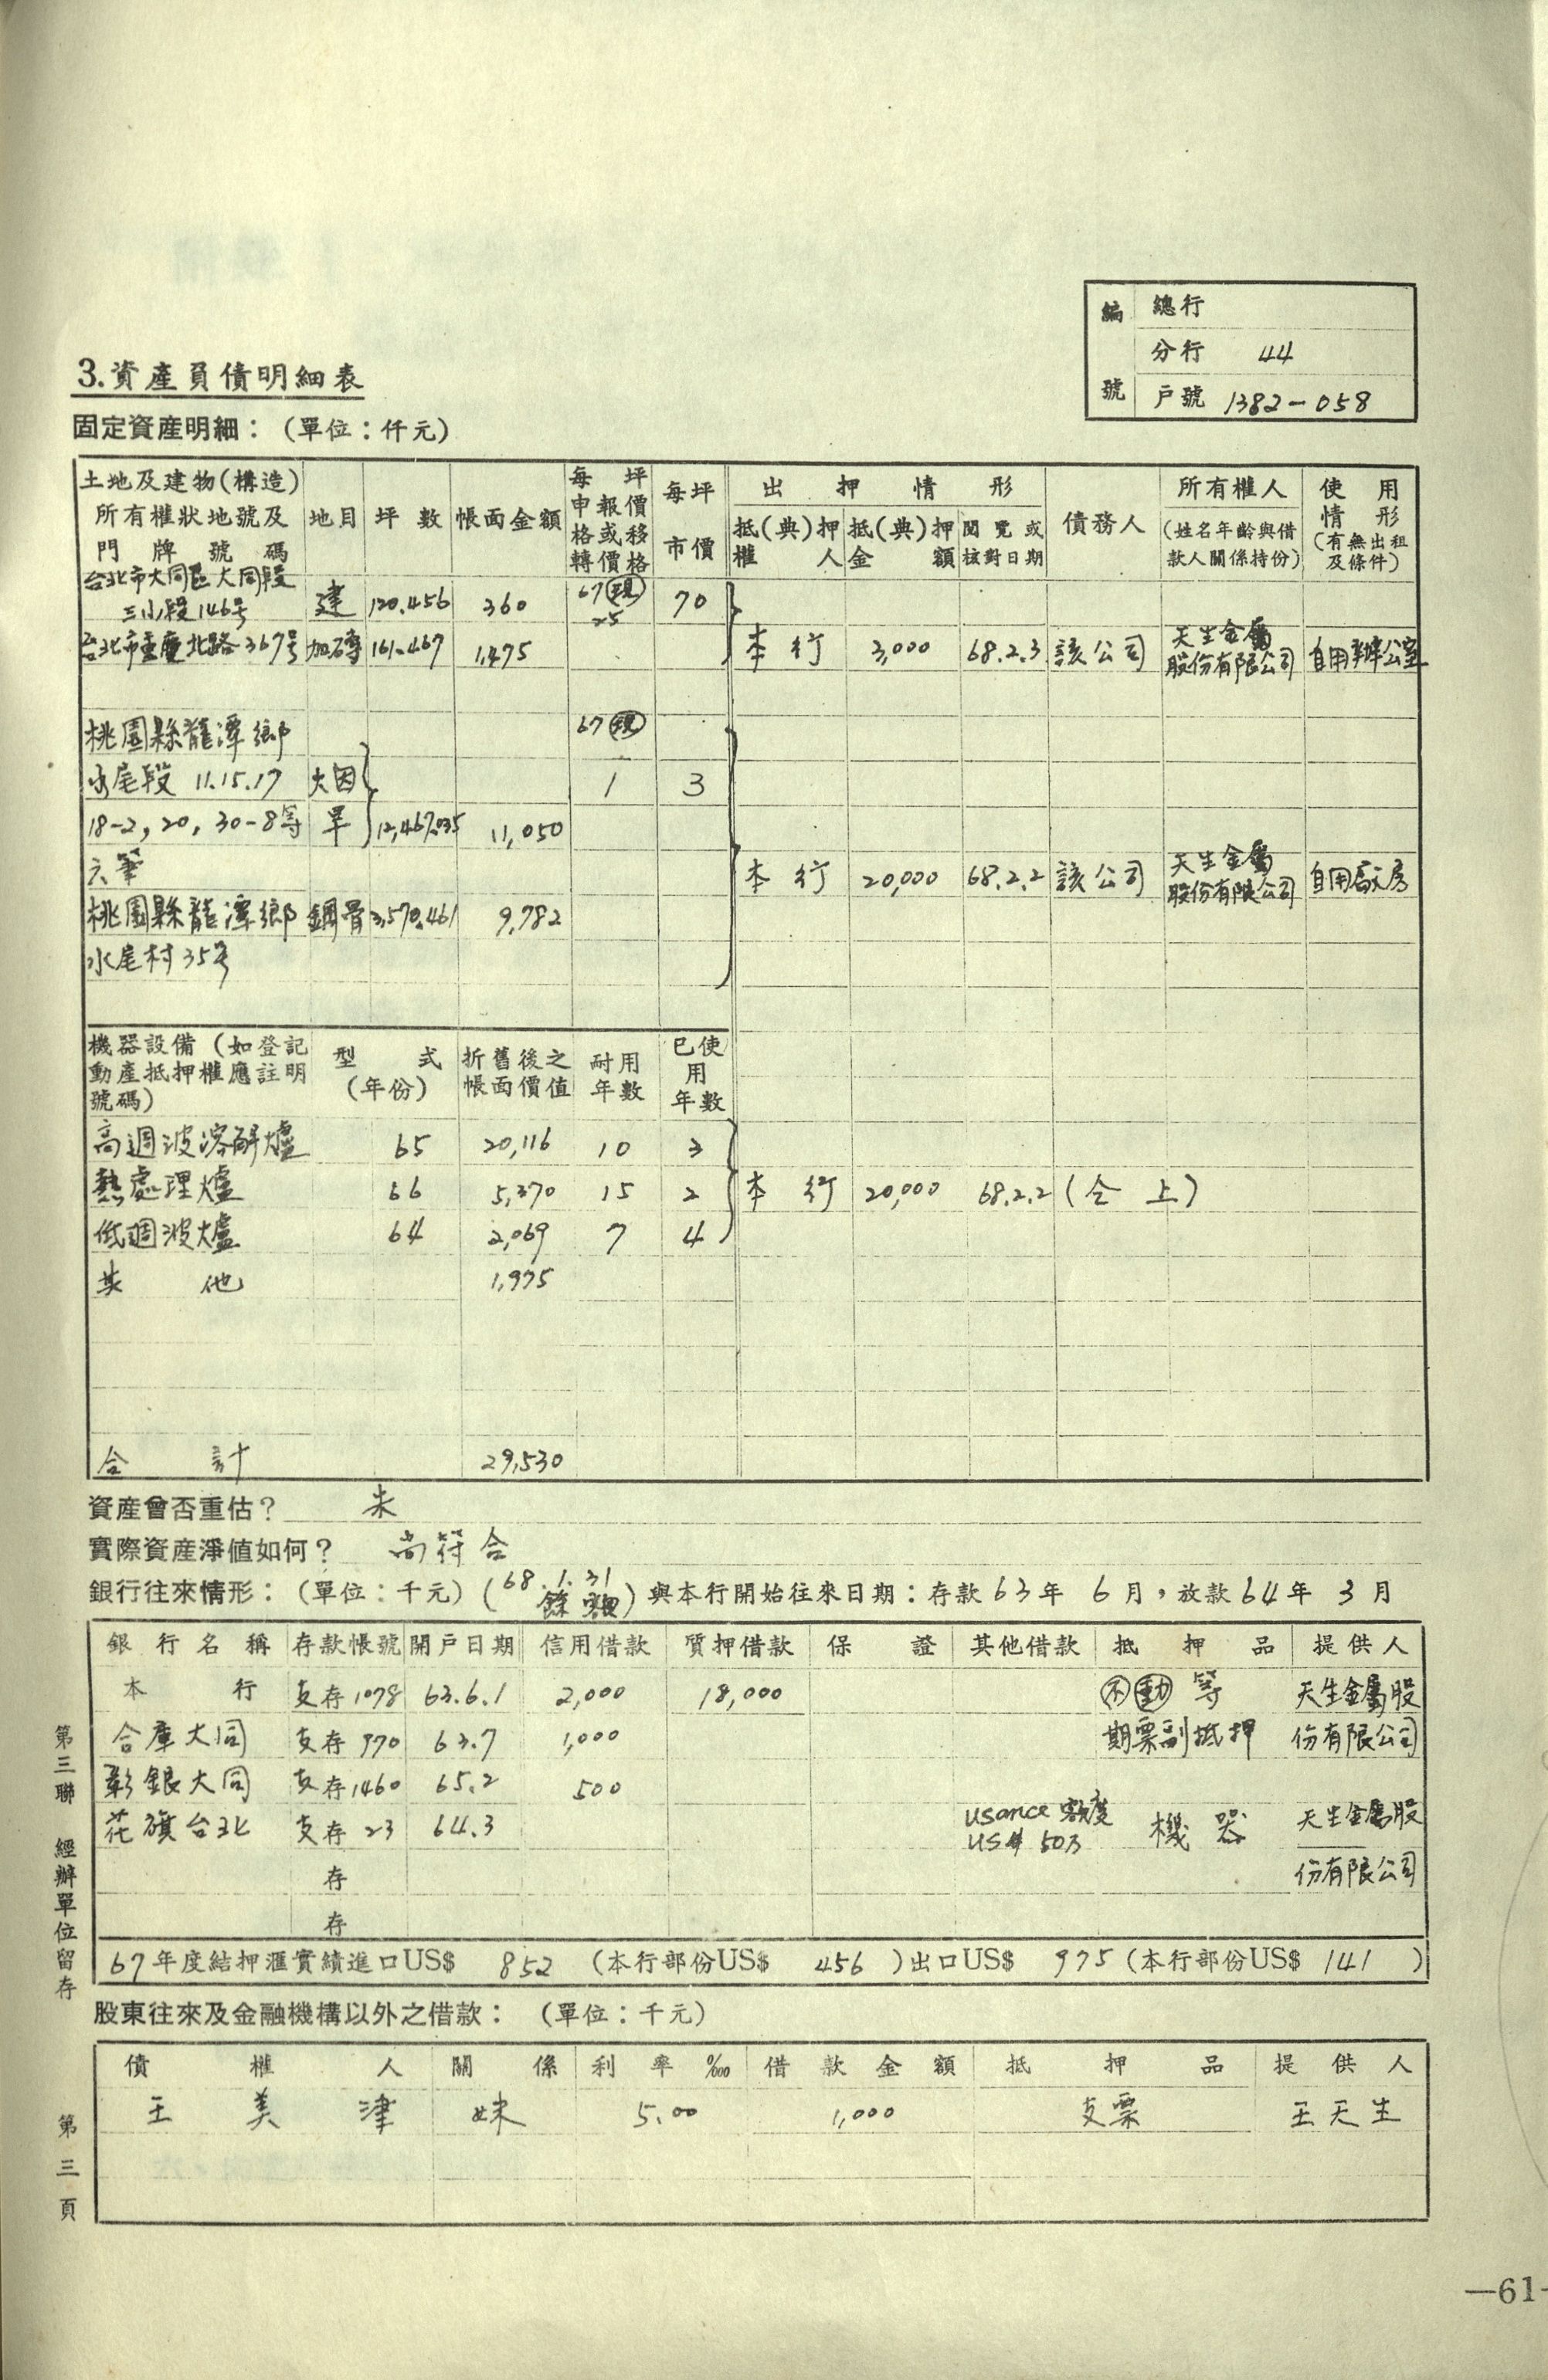 編號 總行
分行 44
戶號 1382-058
3.資產負債明細表
固定資產明細：（單位：仟元）
土地及建物(構造)所有權狀地號及門牌號碼 地目 坪數 帳面金額 每坪申報價格或移轉價格 每坪市價 出押情形 抵(典)押權人 抵(典)押金額 閱覽或核對日期 債務人 所有權人(姓名年齡與借款人關係持份) 使用情形(有無出租及條件)
台北市大同區大同段 67(現)
三小段146号 建 120.456 360 25 70
台北市重慶北路367号 加磚 161.467 1,475 本行 3,000 68.2.3 該公司 天生金屬股份有限公司 自用辦公室
桃園縣龍潭鄉 67(現)
水尾段 11.15.17 1 3
18-2, 20, 30-8等 旱 12,467.035 11,050
六筆 本行 20,000 68.2.2 該公司 天生金屬股份有限公司 自用廠房
桃園縣龍潭鄉 鋼骨 3,570.461 9,782
水尾村35号
機器設備（如登記動產抵押權應註明號碼） 型式（年份） 折舊後之帳面價值 耐用年數 已使用年數
高週波溶解爐 65 20,116 10 3
熱處理爐 66 5,370 15 2 本行 20,000 68.2.2 (仝上)
低週波爐 64 2,069 7 4
其他 1,975
合計 29,530
資產曾否重估？ 未
實際資產淨值如何？ 尚符合
銀行往來情形：（單位：千元）（68.1.31餘額）與本行開始往來日期：存款63年 6月，放款64年 3月
銀行名稱 存款帳號 開戶日期 信用借款 質押借款 保證 其他借款 抵押品 提供人
本行 支存1078 63.6.1 2,000 18,000 (不)(動)等 天生金屬股
合庫大同 支存970 63.7 1,000 期票副抵押 份有限公司
彰銀大同 支存1460 65.2 500
花旗台北 支存23 64.3 usance 額度 US$ 50万 機器 天生金屬股
存 份有限公司
存
67年度結押滙實績進口US$ 852 （本行部份US$ 456 ）出口US$ 975（本行部份US$ 141 ）
股東往來及金融機構以外之借款：（單位：千元）
債權人 關係 利率‱ 借款金額 抵押品 提供人
王美津 妹 5.00 1,000 支票 王天生
第三聯 經辦單位留存
第三頁
—61